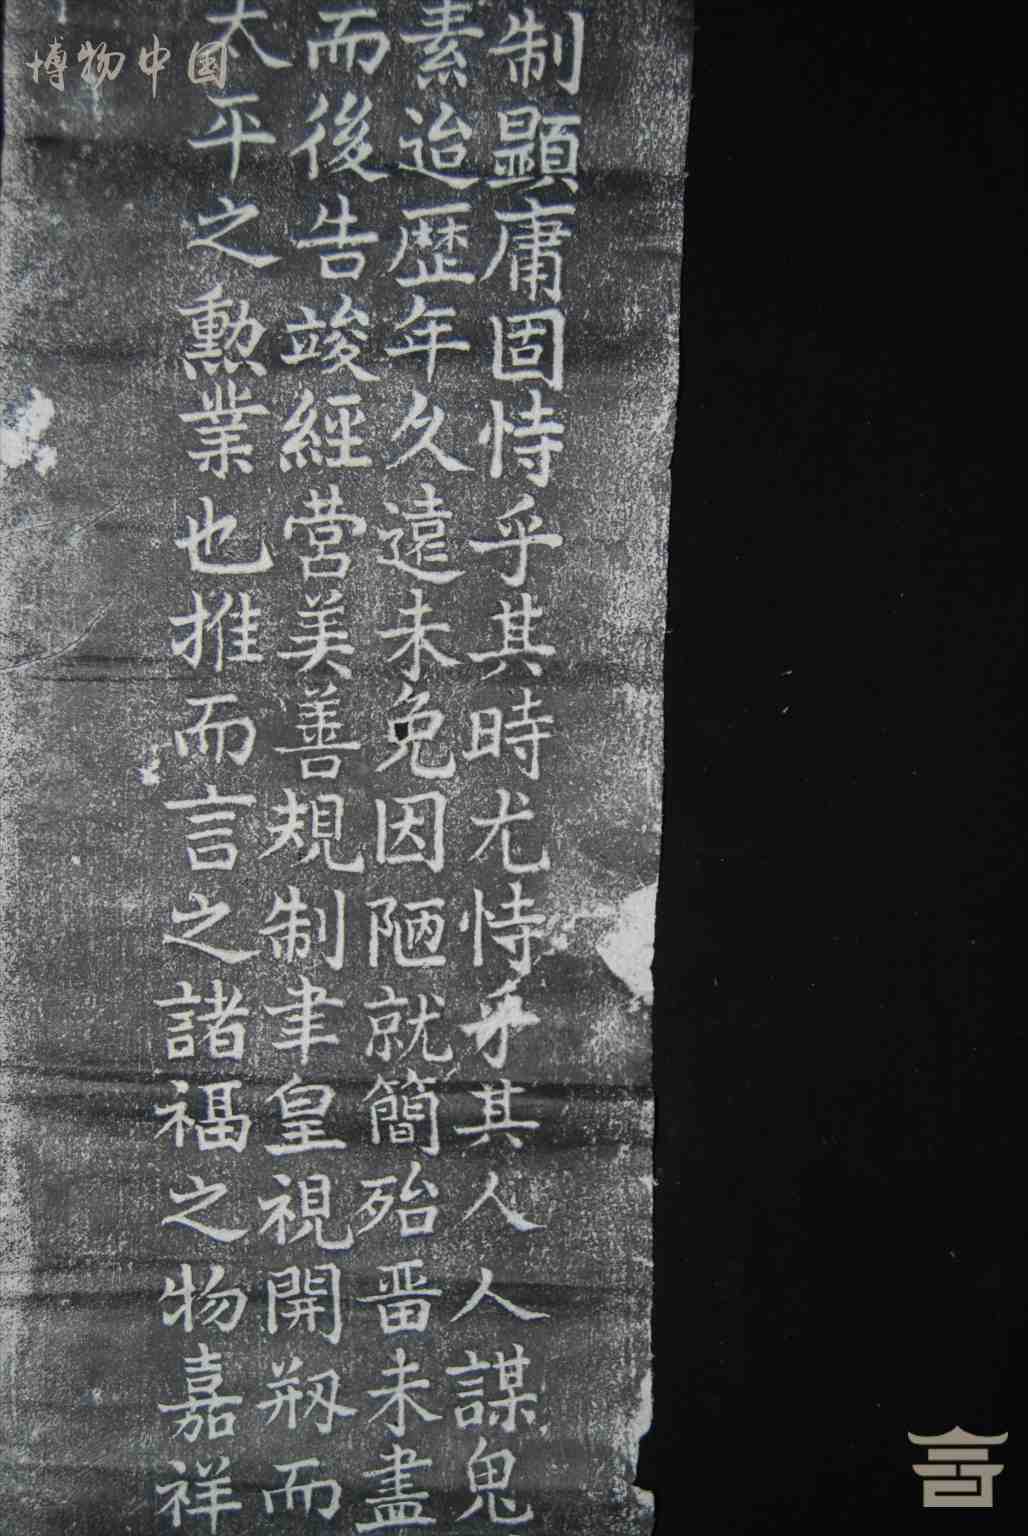 制顯庸固恃乎其時尤恃乎其人人謀鬼
素迨歷年久遠未免因陋就簡殆畨未盡
而後告竣經營美善規制聿皇視開剏而
太平之勲業也推而言之諸福之物嘉祥
博物中国